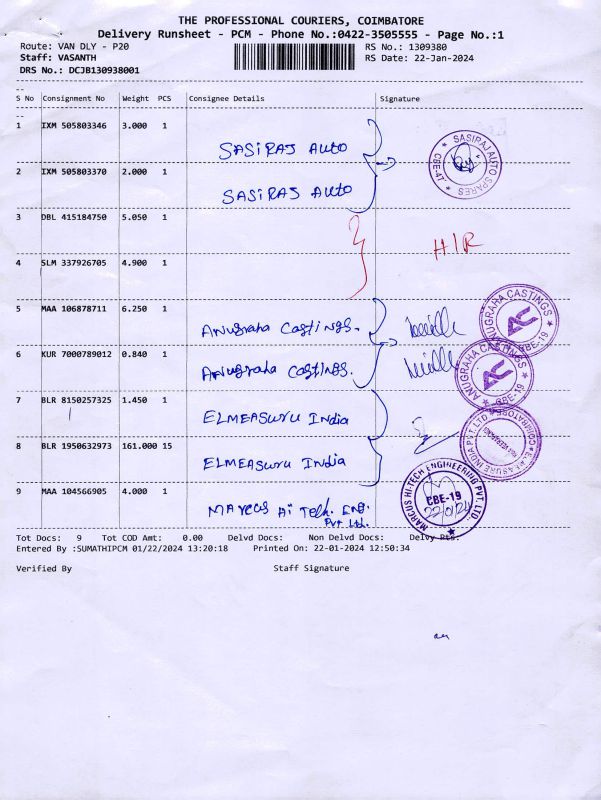 THE PROFESSIONAL COURIERS, COIMBATORE
Delivery Runsheet - PCM - Phone No.:0422-3505555 - Page No.:1
Route: VAN DLY - P20 RS No.: 1309380
Staff: VASANTH RS Date: 22-Jan-2024
DRS No.: DCJB130938001
S No Consignment No Weight PCS Consignee Details Signature
1 IXM 505803346 3.000 1 SASIRAJ AUTO
SASIRAJ AUTO SPARES CBE-44.
2 IXM 505803370 2.000 1 SASIRAJ AUTO
3 DBL 415184750 5.050 1 H/R
4 SLM 337926705 4.900 1
5 MAA 106878711 6.250 1 Anugraha Castings.
ANUGRAHA CASTINGS AC CBE-19
6 KUR 7000789012 0.840 1 Anugraha Castings.
ANUGRAHA CASTINGS AC CBE-19
7 BLR 8150257325 1.450 1 ELMEASURU India
8 BLR 1950632973 161.000 15 ELMEASURU India
ELMEASURE INDIA PVT. LTD. COIMBATORE
9 MAA 104566905 4.000 1 Marcus Hi Tech. Eng. Pvt Ltd.
MARCUS HI-TECH ENGINEERING PVT. LTD. CBE-19 22/01/24
Tot Docs: 9 Tot COD Amt: 0.00 Delvd Docs: Non Delvd Docs: Delvy Pts:
Entered By :SUMATHIPCM 01/22/2024 13:20:18 Printed On: 22-01-2024 12:50:34
Verified By Staff Signature